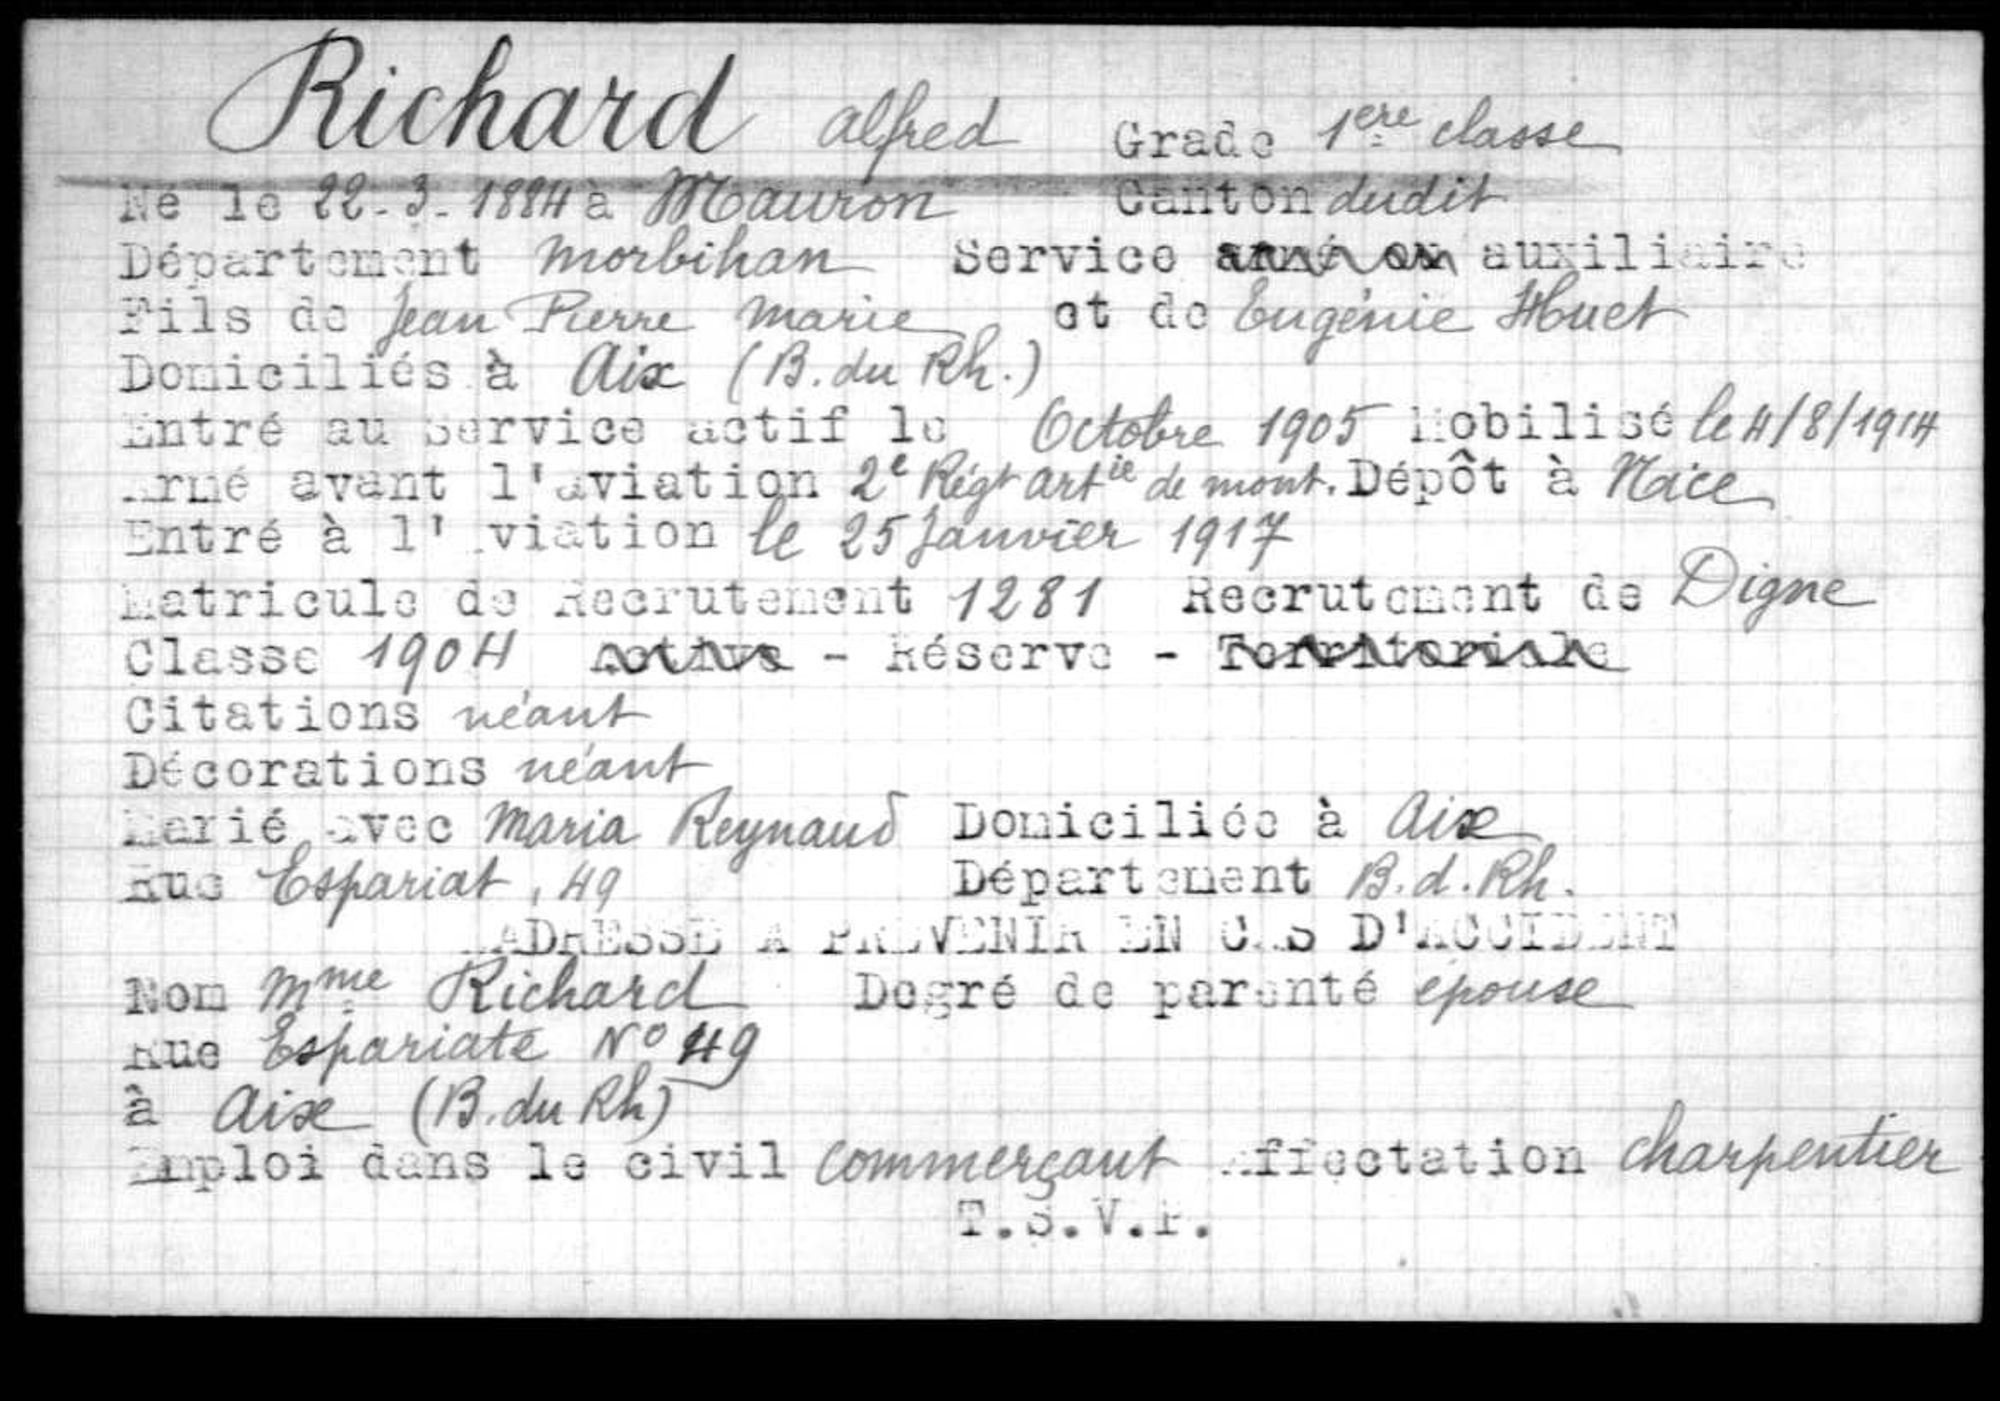 Richard alfred Grade 1ere classe
Né le 22-3-1884 à Mauron Canton dudit
Département Morbihan Service armé ou auxiliaire
Fils de Jean Pierre Marie et de Eugénie Huet
Domiciliés à Aix (B. du Rh.)
Entré au Service actif le Octobre 1905 Mobilisé le 4/8/1914
Armé avant l'aviation 2e Régt artie de mont. Dépôt à Nice
Entré à l'Aviation le 25 Janvier 1917
Matricule de Recrutement 1281 Recrutement de Digne
Classe 1904 Active - Réserve - Territoriale
Citations néant
Décorations néant
Marié avec Maria Reynaud Domiciliée à Aix
Rue Espariat, 49 Département B. d. Rh.
ADRESSE A PREVENIR EN CAS D'ACCIDENT
Nom Mme Richard Degré de parenté épouse
Rue Espariate No 49
à Aix (B. du Rh)
Emploi dans le civil commerçant Affectation charpentier
T.S.V.P.